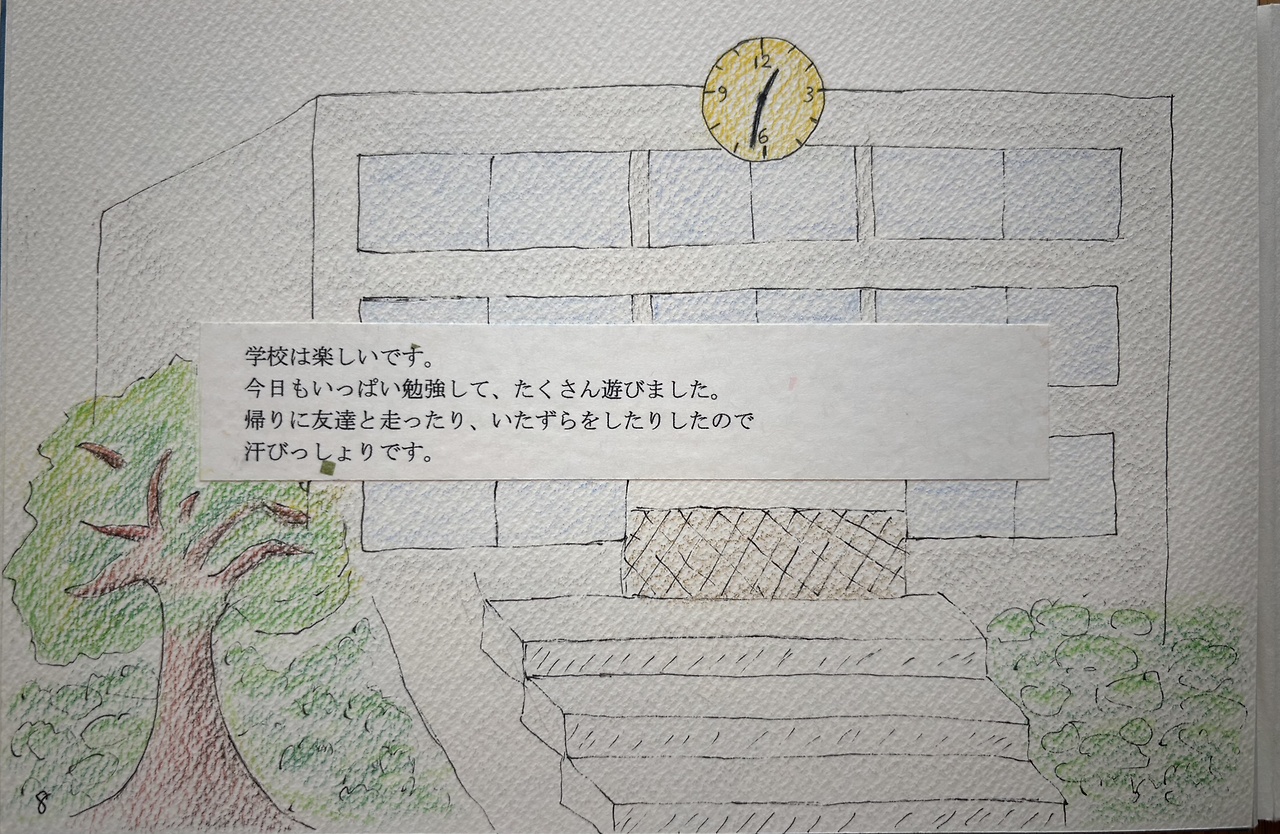 12
9 3
6
学校は楽しいです。
今日もいっぱい勉強して、たくさん遊びました。
帰りに友達と走ったり、いたずらをしたりしたので
汗びっしょりです。
8